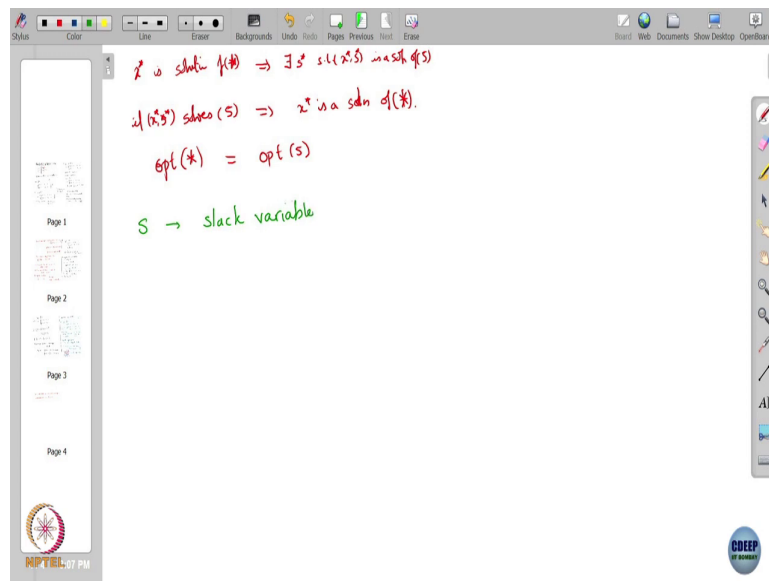 Stylus
Color
Line
Eraser
Backgrounds
Undo
Redo
Pages
Previous
Next
Erase
Board
Web
Documents
Show Desktop
OpenBoar
x* is solution of (*) ⇒ ∃ s* s.t (x*, s*) is a soln of (S)
if (x*, s*) solves (S) ⇒ x* is a soln of (*).
opt(*) = opt(S)
S → slack variable
Page 1
Page 2
Page 3
Page 4
NPTEL
:07 PM
CDEEP
IIT BOMBAY